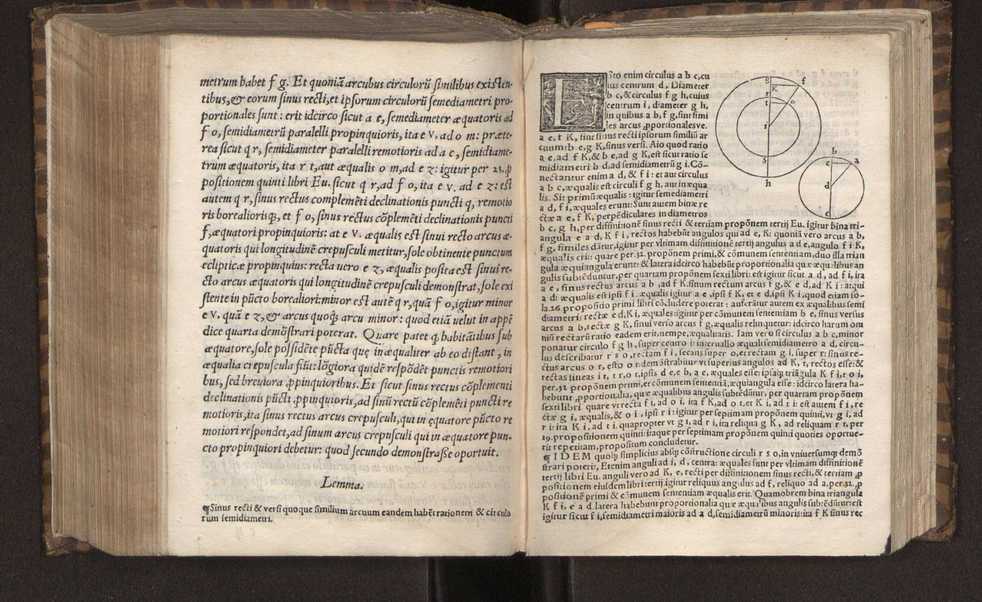 metrum habet f g. Et quoniã arcubus circulorũ similibus existen-
tibus, & eorum sinus recti, et ipsorum circulorũ semediametri pro-
portionales sunt: erit idcirco sicut a e, semediameter æquatoris ad
f o, semidiametrũ paralelli propinquioris, ita e v. ad o m: præte-
rea sicut q r, semidiameter paralleli remotioris ad a e, semidiame-
trum æquatoris, ita r t, aut æqualis o m, ad e z: igitur per 23. p
positionem quinti libri Eu. sicut q r, ad f o, ita e v. ad e z: est
autem q r, sinus rectus complemẽti declinationis puncti q, remotio
ris borealiorisq;, et f o, sinus rectus cõplemẽti declinationis puncti
f, æquatori propinquioris: at e v. æqualis est sinui recto arcus æ-
quatoris qui longitudinẽ crepusculi metitur, sole obtinente punctum
eclipticæ propinquius: recta uero e z, æqualis posita est sinui re-
cto arcus æquatoris qui longitudinẽ crepusculi demonstrat, sole exi
stente in pũcto borealiori: minor est autẽ q r, quã f o, igitur minor
e v. quã e z, & arcus quoq; arcu minor: quod etiã velut in appẽ
dice quarta demõstrari poterat. Quare patet q, habitãtibus sub
æquatore, sole possidẽte pũcta quę inæqualiter ab eo distant, in
æqualia crepuscula fiũt: lõgiora quidẽ respõdẽt punctis remotiori
bus, sed breuiora, ppinquioribus. Et sicut sinus rectus cõplementi
declinationis pũcti, ppinquioris, ad sinũ rectũ cõplemẽti pũcti re
motioris, ita sinus rectus arcus crepusculi, qui in ęquatore pũcto re
motiori respondet, ad sinum arcus crepusculi qui in æquatore pun-
cto propinquiori debetur: quod secundo demonstrasse oportuit.
Lemma.
¶Sinus recti & versi quoque similium arcuum eandem habẽt rationem & circulo
rum semidiametri.
Sto enim circulus a b c, cu
ius centrum d. Diameter
b c, & circulus f g h, cuius
centrum i, diameter g h,
in quibus a b, f g, sint simi
les arcus, pportionales ve.
a e, f K, sint sinus recti ipsorum similiũ ar
cuum: b e, g K, sinus versi. Aio quod ratio
a e, ad f K, & b e, ad g K, est sicut ratio se
midiametri b d, ad semidiametrũ g i. Cõ-
nectantur enim a d, & f i: et aut circulus
a b c, æqualis est circuli f g h, aut inæqua
lis. Sit primũ æqualis: igitur semidiametri
a d, f i, æquales erunt: Sunt autem binæ re
ctæ a e, f K, perpẽdiculares in diametros
b c, g h, per diffinitionẽ sinus recti & tertiam propõnem tertij Eu. igitur bina tri-
angula e a d, K f i, rectos habebũt angulos qui ad e, K: quoniã vero arcus a b,
f g, similes dãtur, igitur per vltimam diffinitionẽ tertij angulus a d e, angulo f i K,
æqualis erit: quare per 32. propõnem primi, & cõmunem sentẽtiam, duo illa trian
gula æquiangula erunt: & latera idcirco habebũt proportionalia quæ æqualibus an
gulis subtẽduntur, per quartam propõnem sexti libri: est igitur sicut a d, ad f i, ita
a e, sinus rectus arcus a b, ad f K. sinum rectum arcus f g, & e d, ad K i: atqui
a d: æqualis est ipsi f i. æqualis igitur a e, ipsi f K, et e d, ipsi K i, quod etiam so-
la 26. propositio primi libri cõcludere poterat: auferãtur autem ex æqualibus semi
diametri: rectæ e d, K i, æquales igitur per cõmunem sententiam b e, sinus versus
arcus a b, rectæ g K, sinui verso arcus f g, æqualis relinquetur: idcirco harum om
niũ rectarũ ratio eadem erit, nempe, æqualitatis. Iam vero si circulus a b c, minor
ponatur circulo f g h, super centro i: interuallo æquali semidiametro a d, circu-
lus describatur r s o, rectam f i, secans super o, et rectam g i, super r: sinus re-
ctus arcus o r, esto o t: demõstrabitur vt superius angulos ad K, t, rectos esse: &
rectas lineas i r, t r, o t, ipsis d e, e b, a e, æquales esse: ipsaq; triãgula K f i, t o i,
per 32. propõnem primi, et cõmunem sententiã, æquiangula esse: idcirco latera ha-
bebunt, pportionalia, quæ æqualibus angulis subtẽdũtur, per quartam propõnem
sexti libri: quare vt recta f i, ad o i, ita f K, ad o t, et K i, ad t i: est autem f i, re
ctæ g i, æqualis, & o i, ipsi r i: igitur per septimam propõnem quinti, vt g i, ad
r i: ita K i, ad t i: quapropter vt g i, ad r i, ita reliqua g K, ad reliquam r t, per
19. propositionem quinti: itaque per septimam propõnem quinti quoties oportue-
rit repetitam, propositum concludetur.
¶IDEM quoq; simplicius absq; cõstructione circuli r s o, in vniuersumq; demõ
strari poterit, Etenim anguli ad i, d, centra: æquales sunt per vltimam diffinitionẽ
tertij Eu. anguli vero ad K, e, recti per diffinitionem sinus recti, & tertiam, p
positionem eiusdem libri tertij, igitur reliquus angulus ad f, reliquo ad a. per 32. p
positionẽ primi & cõmunem sententiam æqualis erit. Quamobrem bina triangula
K f i, e a d, latera habebunt proportionalia quæ æqualibus angulis subtẽduntur: est
igitur sicut f i, semidiametri maioris ad a d, semidiametrũ minoris: ita f K sinus rec